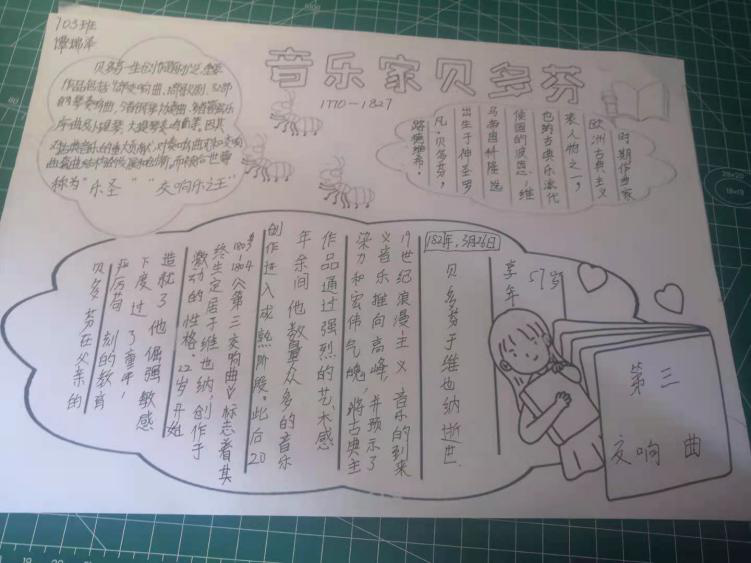 703班
音乐家贝多芬
1770-1827
贝多芬一生创作题材广泛,重要
作品包括9部交响曲、1部歌剧、32部
钢琴奏鸣曲、5首钢琴协奏曲、多首管弦乐
序曲及小提琴、大提琴奏鸣曲等。因其
对古典音乐的重大贡献,对奏鸣曲式和交响
曲套曲结构的发展和创新,而被后世尊
称为"乐圣" "交响乐之王"
路德维希·
凡·贝多芬,
出生于神圣罗
马帝国科隆选
侯国的波恩,维
也纳古典乐派代
表人物之一,
欧洲古典主义
时期作曲家
贝多芬在父亲的
严厉苛刻的教育
下度过了童年,
造就了他倔强敏感
激动的性格.12岁开始
终生定居于维也纳,创作于
1803-1804《第三交响曲》标志着其
创作进入成熟阶段。此后20
年余间 他数量众多的音乐
作品通过强烈的艺术感
染力和宏伟气魄,将古典主
义音乐推向高峰,并预示了
19世纪浪漫主义 音乐的到来
1827年,3月26日
贝多芬于维也纳逝世
享年57岁
第三
交响曲